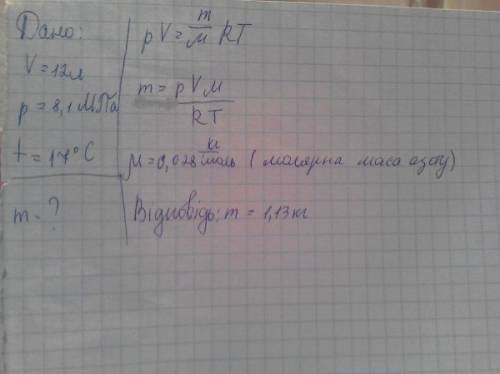 Дано:
V = 12л
p = 8,1 МПа
t = 17°C
m - ?
pV = m/M RT
m = pVM/RT
M = 0,028 кг/моль ( молярна маса азоту)
Відповідь: m = 1,13 кг